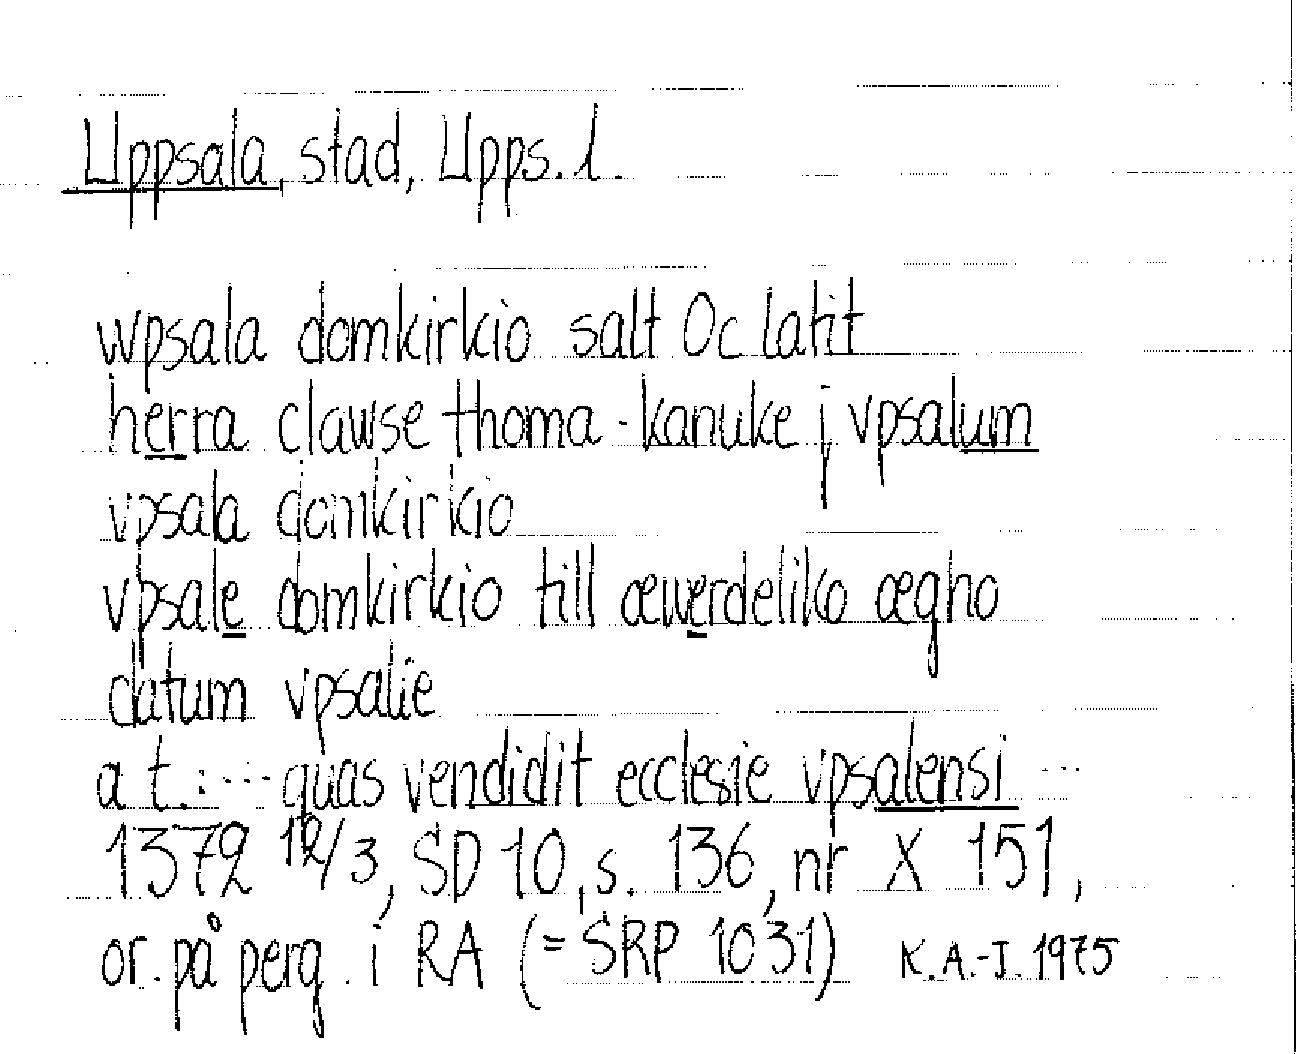 Uppsala, stad, Upps. l.
wpsala domkirkio salt Oc latit
herra clawse thoma - kanuke j vpsalum
vpsala domkirkio
vpsale domkirkio till æwerdeliko ægho
datum vpsalie
a t.: --- quas vendidit ecclesie vpsalensi ---
1372 12/3, SD 10, s. 136, nr X 151,
or. på perg. i RA (= SRP 1031) K.A.-J. 1975